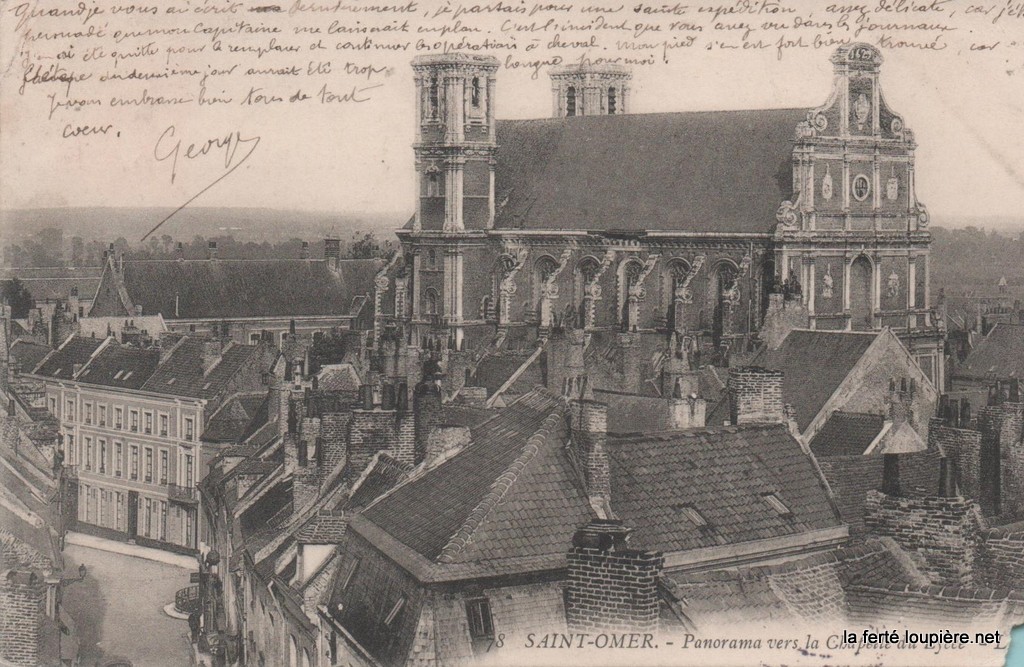 Quand je vous ai écrit dernièrement, je partais pour une sainte expédition assez délicate, car j'ai
persuadé que mon Capitaine me laissait en plan. C'est l'incident que vous avez vu dans le Journaux
J'en ai été quitte pour le remplacer et continuer les opérations à cheval. Mon pied s'en est fort bien trouvé, car
l'étape du deuxième jour aurait été trop longue pour moi.
Je vous embrasse bien tous de tout
cœur.
George
78 SAINT-OMER. - Panorama vers la Chapelle du Lycée - L
la ferté loupière.net